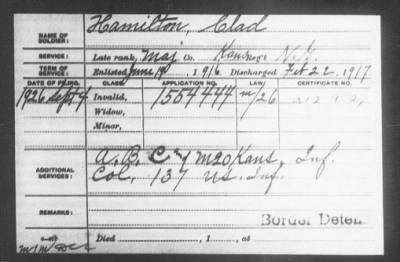 Hamilton, Clad
NAME OF SOLDIER:
SERVICE: Late rank, Maj Co. Kans Reg't N.G.
TERM OF SERVICE: Enlisted June 19, 1916. Discharged Feb 22, 1917
DATE OF FILING. CLASS. APPLICATION NO. LAW. CERTIFICATE NO.
1926 Sept 4 Invalid, 1554444 m/26
Widow,
Minor,
ADDITIONAL SERVICES: A.B.C & M 20 Kans, Inf.
Col. 137 US. Inf.
REMARKS: Border Deten.
Died , 1 , at